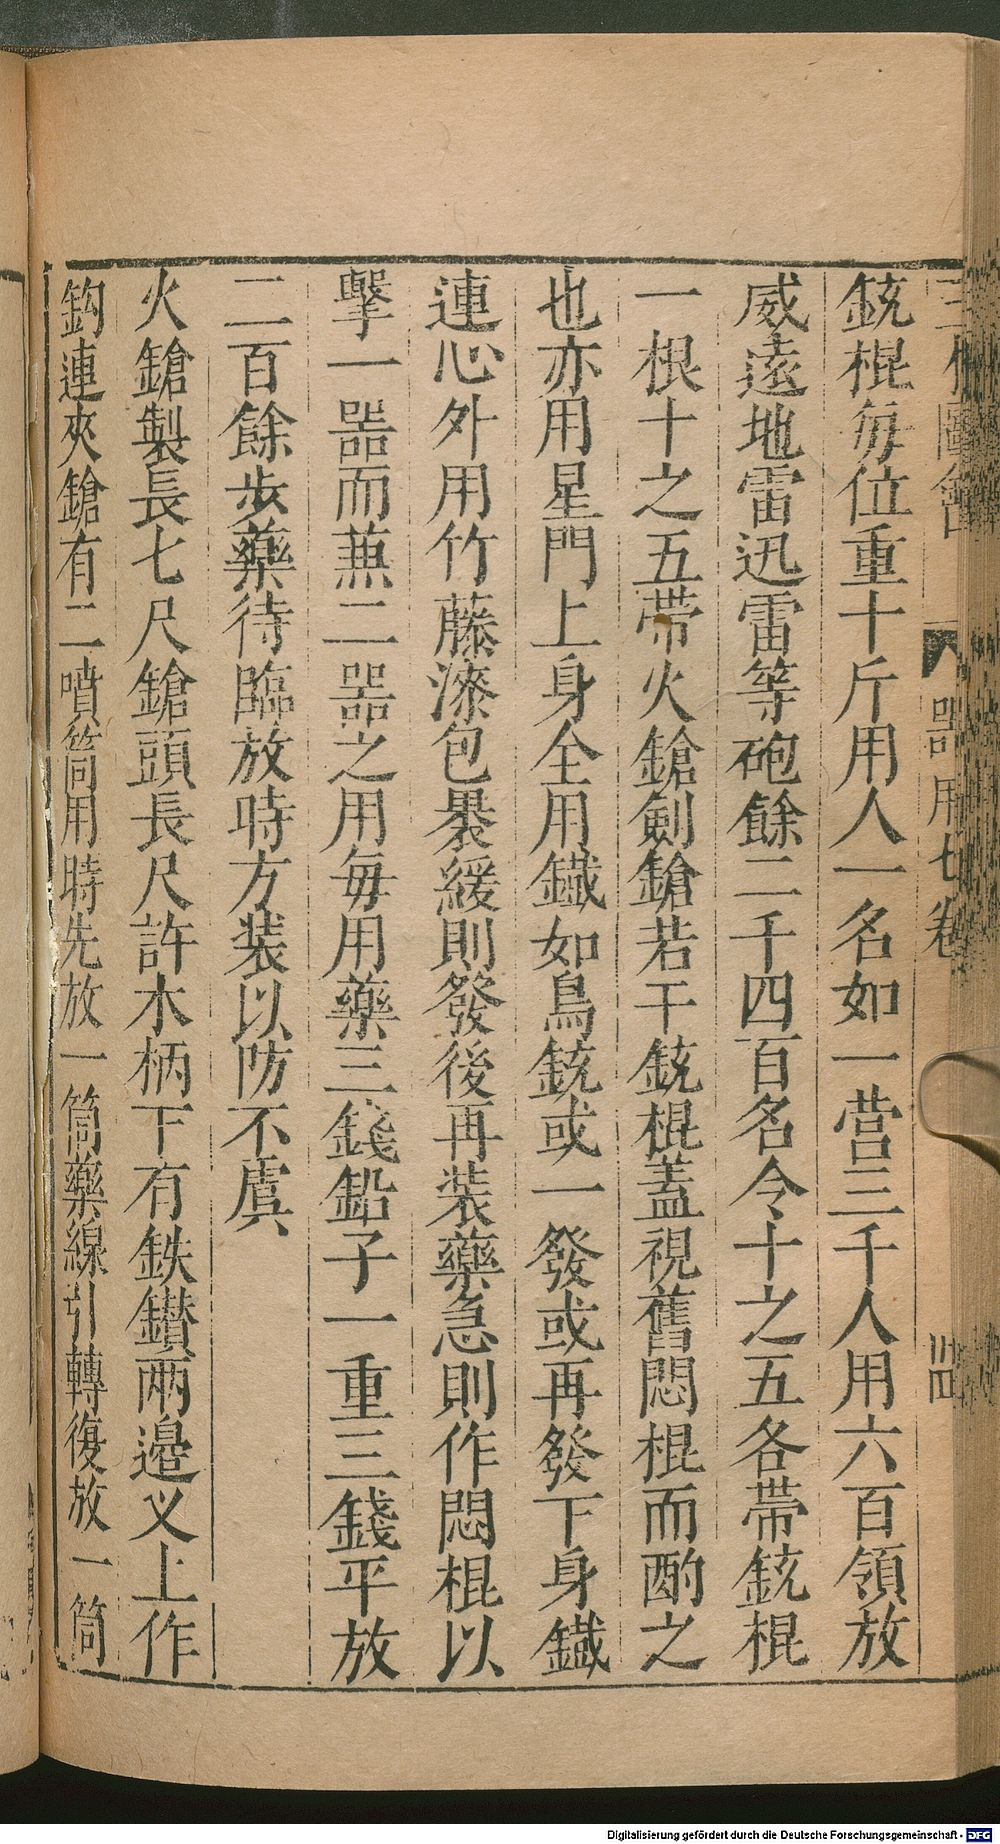 三才圖會 器用七卷 三四
銃棍每位重十斤用人一名如一營三千人用六百領放
威遠地雷迅雷等砲餘二千四百名令十之五各帶銃棍
一根十之五帶火鎗劍鎗若干銃棍蓋視舊悶棍而酌之
也亦用星門上身全用鐵如鳥銃或一發或再發下身鐵
連心外用竹藤漆包褁緩則發後再装藥急則作悶棍以
擊一噐而蕪二噐之用每用藥三錢鉛子一重三錢平放
二百餘步藥待臨放時方装以防不虞
火鎗製長七尺鎗頭長尺許木柄下有鉄鑚兩邉义上作
鈎連夾鎗有二噴筒用時先放一筒藥線引轉復放一筒
Digitalisierung gefördert durch die Deutsche Forschungsgemeinschaft - DFG